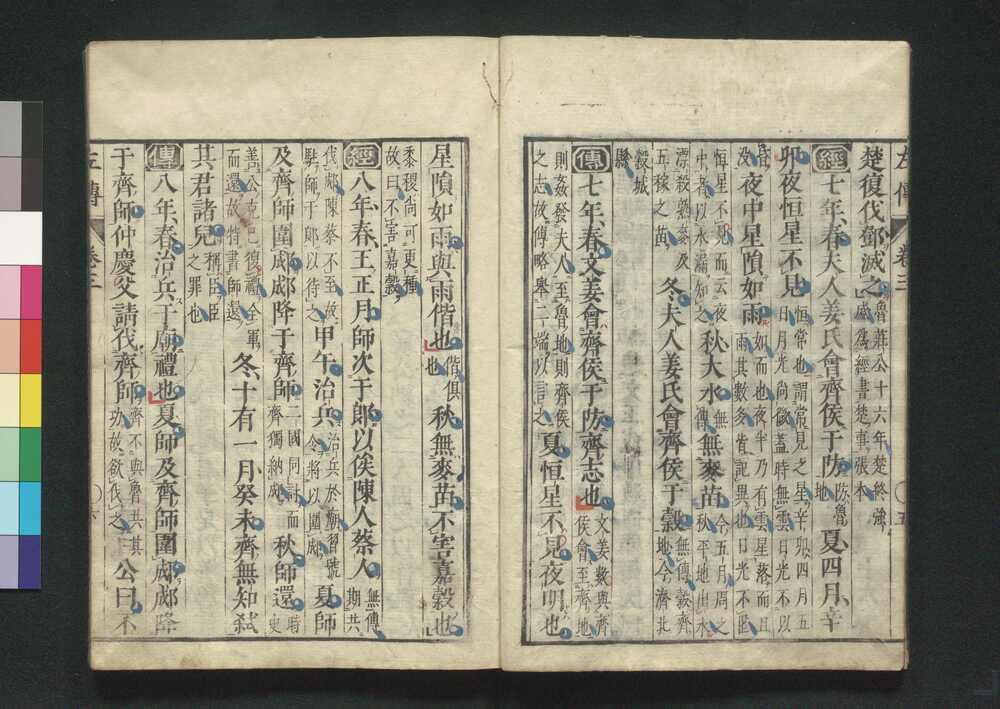 左傳　卷三　〇五
楚復伐鄧滅之魯莊公十六年楚終強盛爲經書楚事張本
經七年春夫人姜氏會齊侯于防防魯地夏四月辛
卯夜恒星不見恒常也謂常見之星辛卯四月五日月光尚微蓋時無雲日光不以
昏没夜中星隕如雨如而也夜半乃有雲星落而且雨其數多皆記異也日光不匿
恒星不見而云夜中者以水漏知之秋大水無傳無麥苗今五月周之秋平地出水
漂殺熟麥及五稼之苗冬夫人姜氏會齊侯于穀無傳穀齊地今濟北
穀城縣
傳七年春文姜會齊侯于防齊志也文姜數與齊侯會至齊地
則姦發夫人至魯地則齊侯之志故傳略舉二端以言之夏恒星不見夜明也
星隕如雨與雨偕也偕俱也秋無麥苗不害嘉穀也
黍稷尚可更種故曰不害嘉穀
經八年春王正月師次于郎以俟陳人蔡人無傳期共
伐郕陳蔡不至故駐師于郎以待之甲午治兵治兵於廟習號令將以圍郕夏師
及齊師圍郕郕降于齊師二國同討而齊獨納郕秋師還時史
善公克己復禮全軍而還故特書師還冬十有一月癸未齊無知弑
其君諸兒稱臣臣之罪也
傳八年春治兵于廟禮也夏師及齊師圍郕郕降
于齊師仲慶父請伐齊師齊不與魯共其功故欲伐之公曰不
左傳　卷三　〇六